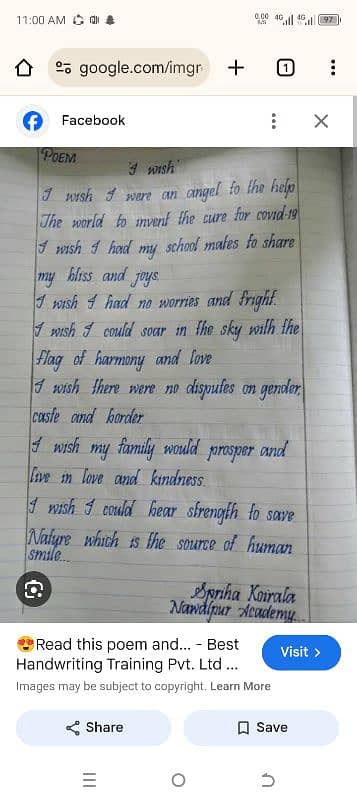 11:00 AM
0.00
K/S
4G
4G
97
google.com/imgr
1
Facebook
POEM
'I wish'
I wish I were an angel to the help
The world to invent the cure for covid-19
I wish I had my school mates to share
my bliss and joys
I wish I had no worries and fright.
I wish I could soar in the sky with the
flag of harmony and love
I wish there were no disputes on gender,
caste and border
I wish my family would prosper and
live in love and kindness
I wish I could bear strength to save
Nature which is the source of human
smile...
Spriha Koirala
Nawalpur Academy...
😍Read this poem and... - Best
Handwriting Training Pvt. Ltd ...
Visit >
Images may be subject to copyright. Learn More
Share
Save